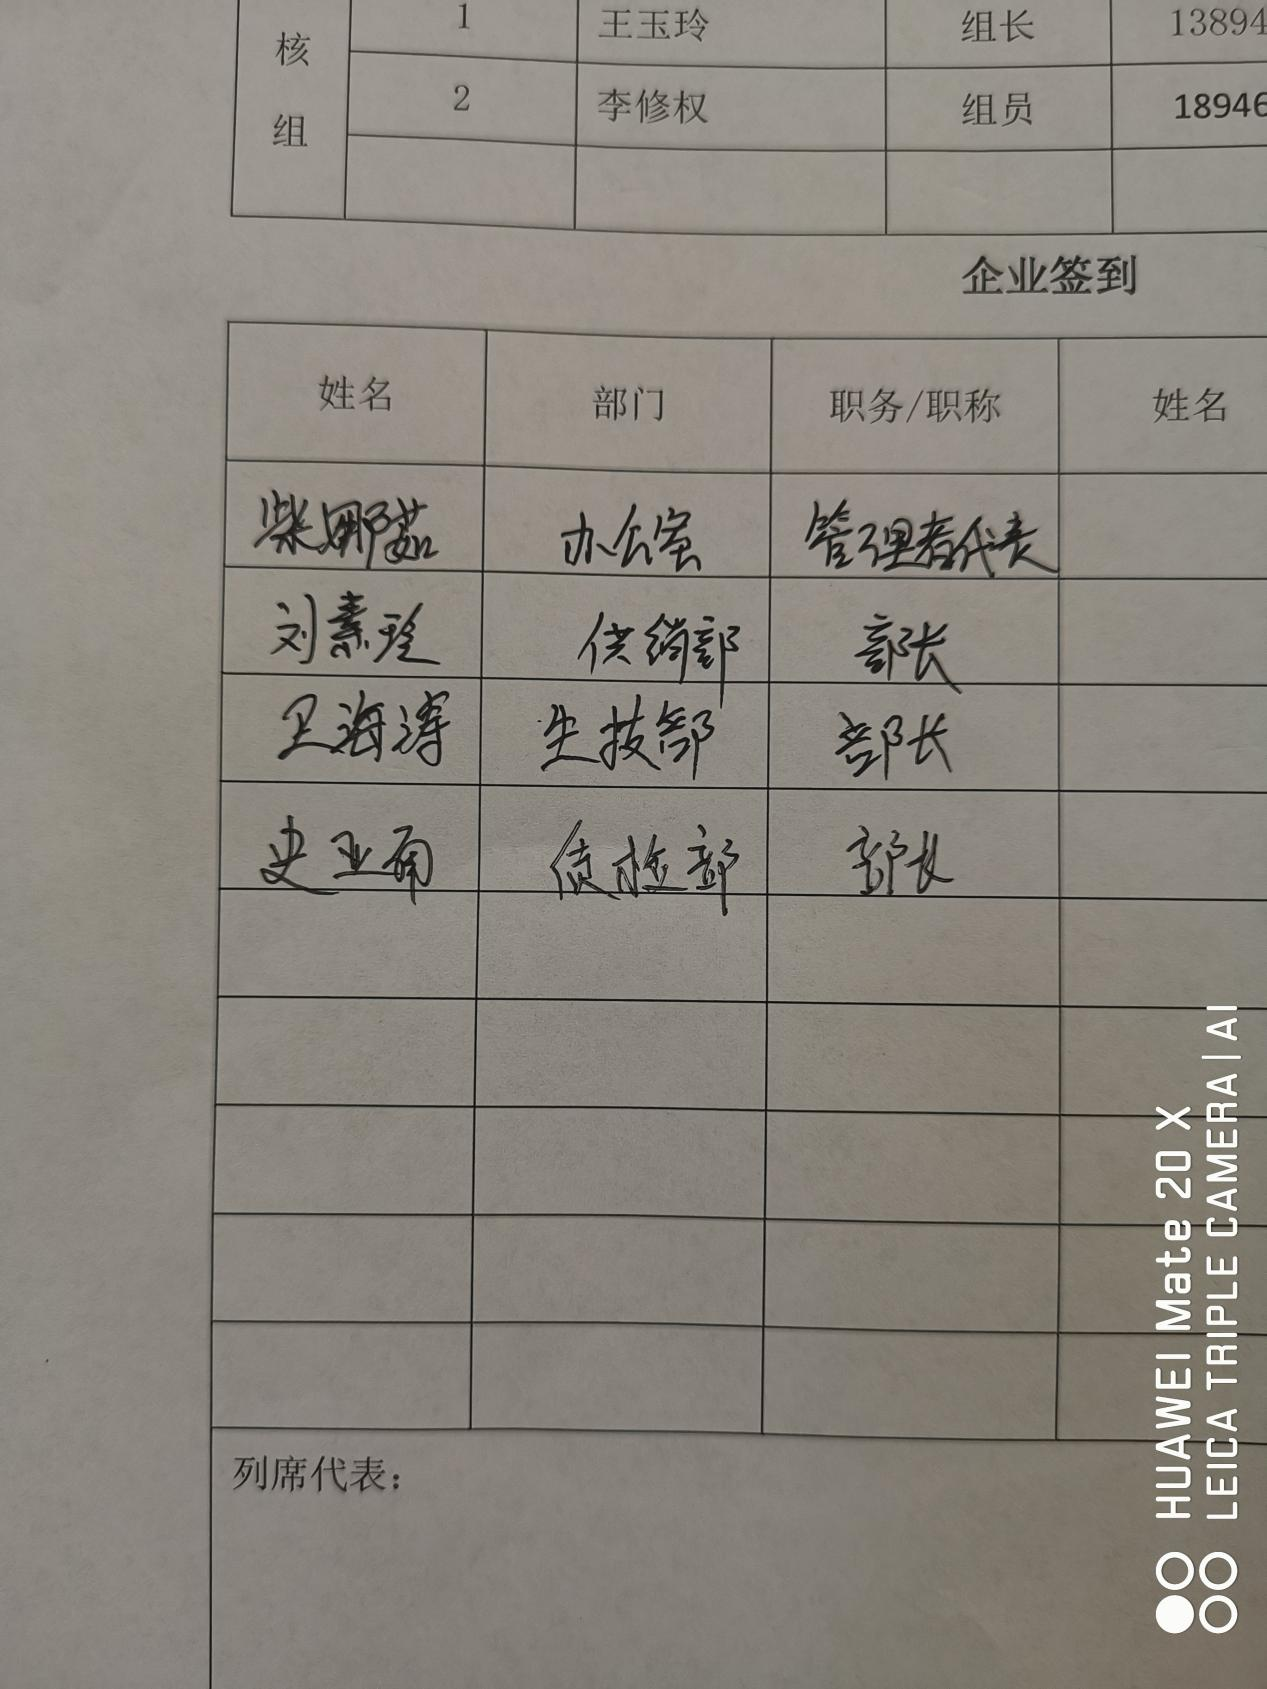 核组
1 王玉玲 组长 13894
2 李修权 组员 18946
企业签到
姓名 部门 职务/职称 姓名
柴娜茹 办公室 管理者代表
刘素玲 供销部 部长
卫海涛 生技部 部长
史亚丽 质检部 部长
列席代表：
HUAWEI Mate 20 X
LEICA TRIPLE CAMERA | AI